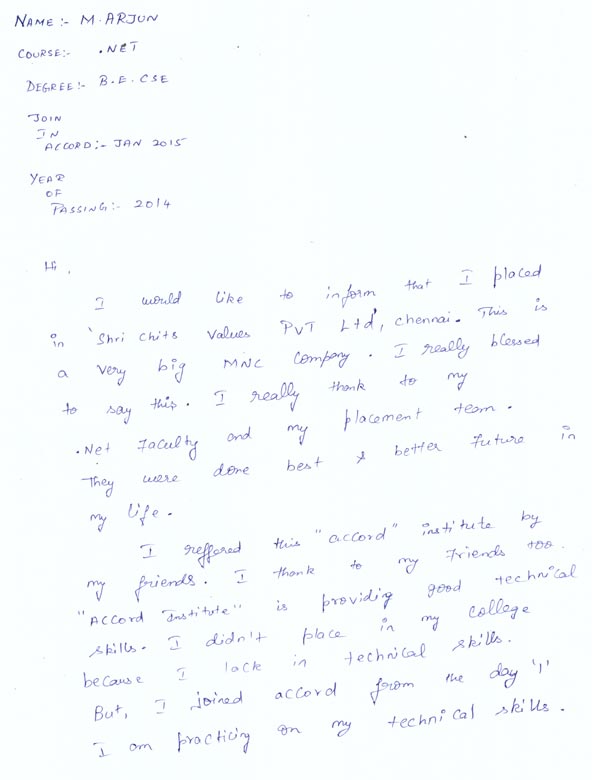 NAME :- M. ARJUN
COURSE:- .NET
DEGREE:- B.E. CSE
JOIN
IN
ACCORD:- JAN 2015
YEAR
OF
PASSING:- 2014
Hi,
I would like to inform that I placed
in 'Shri chits values PVT Ltd', chennai. This is
a very big MNC company. I really blessed
to say this. I really thank to my
.Net Faculty and my placement team.
They were done best & better future in
my life.
I reffered this "accord" institute by
my friends. I thank to my Friends too.
"ACCORD Institute" is providing good technical
skills. I didn't place in my college
because I lack in technical skills.
But, I joined accord from the day '1'
I am practicing on my technical skills.